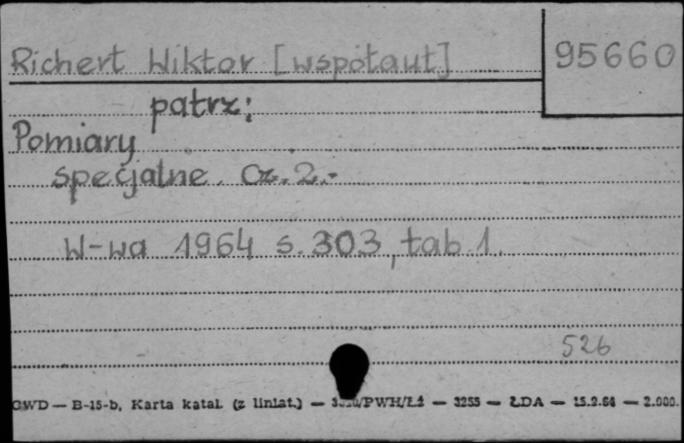 Richert Wiktor [współaut] 95660
patrz:
Pomiary
specjalne. Cz. 2.-
W-wa 1964 s. 303, tab 1.
526
GWD — B-15-b, Karta katal. (z liniat.) — PWH/Łż — 3255 — ŁDA — 15.9.64 — 2.000.